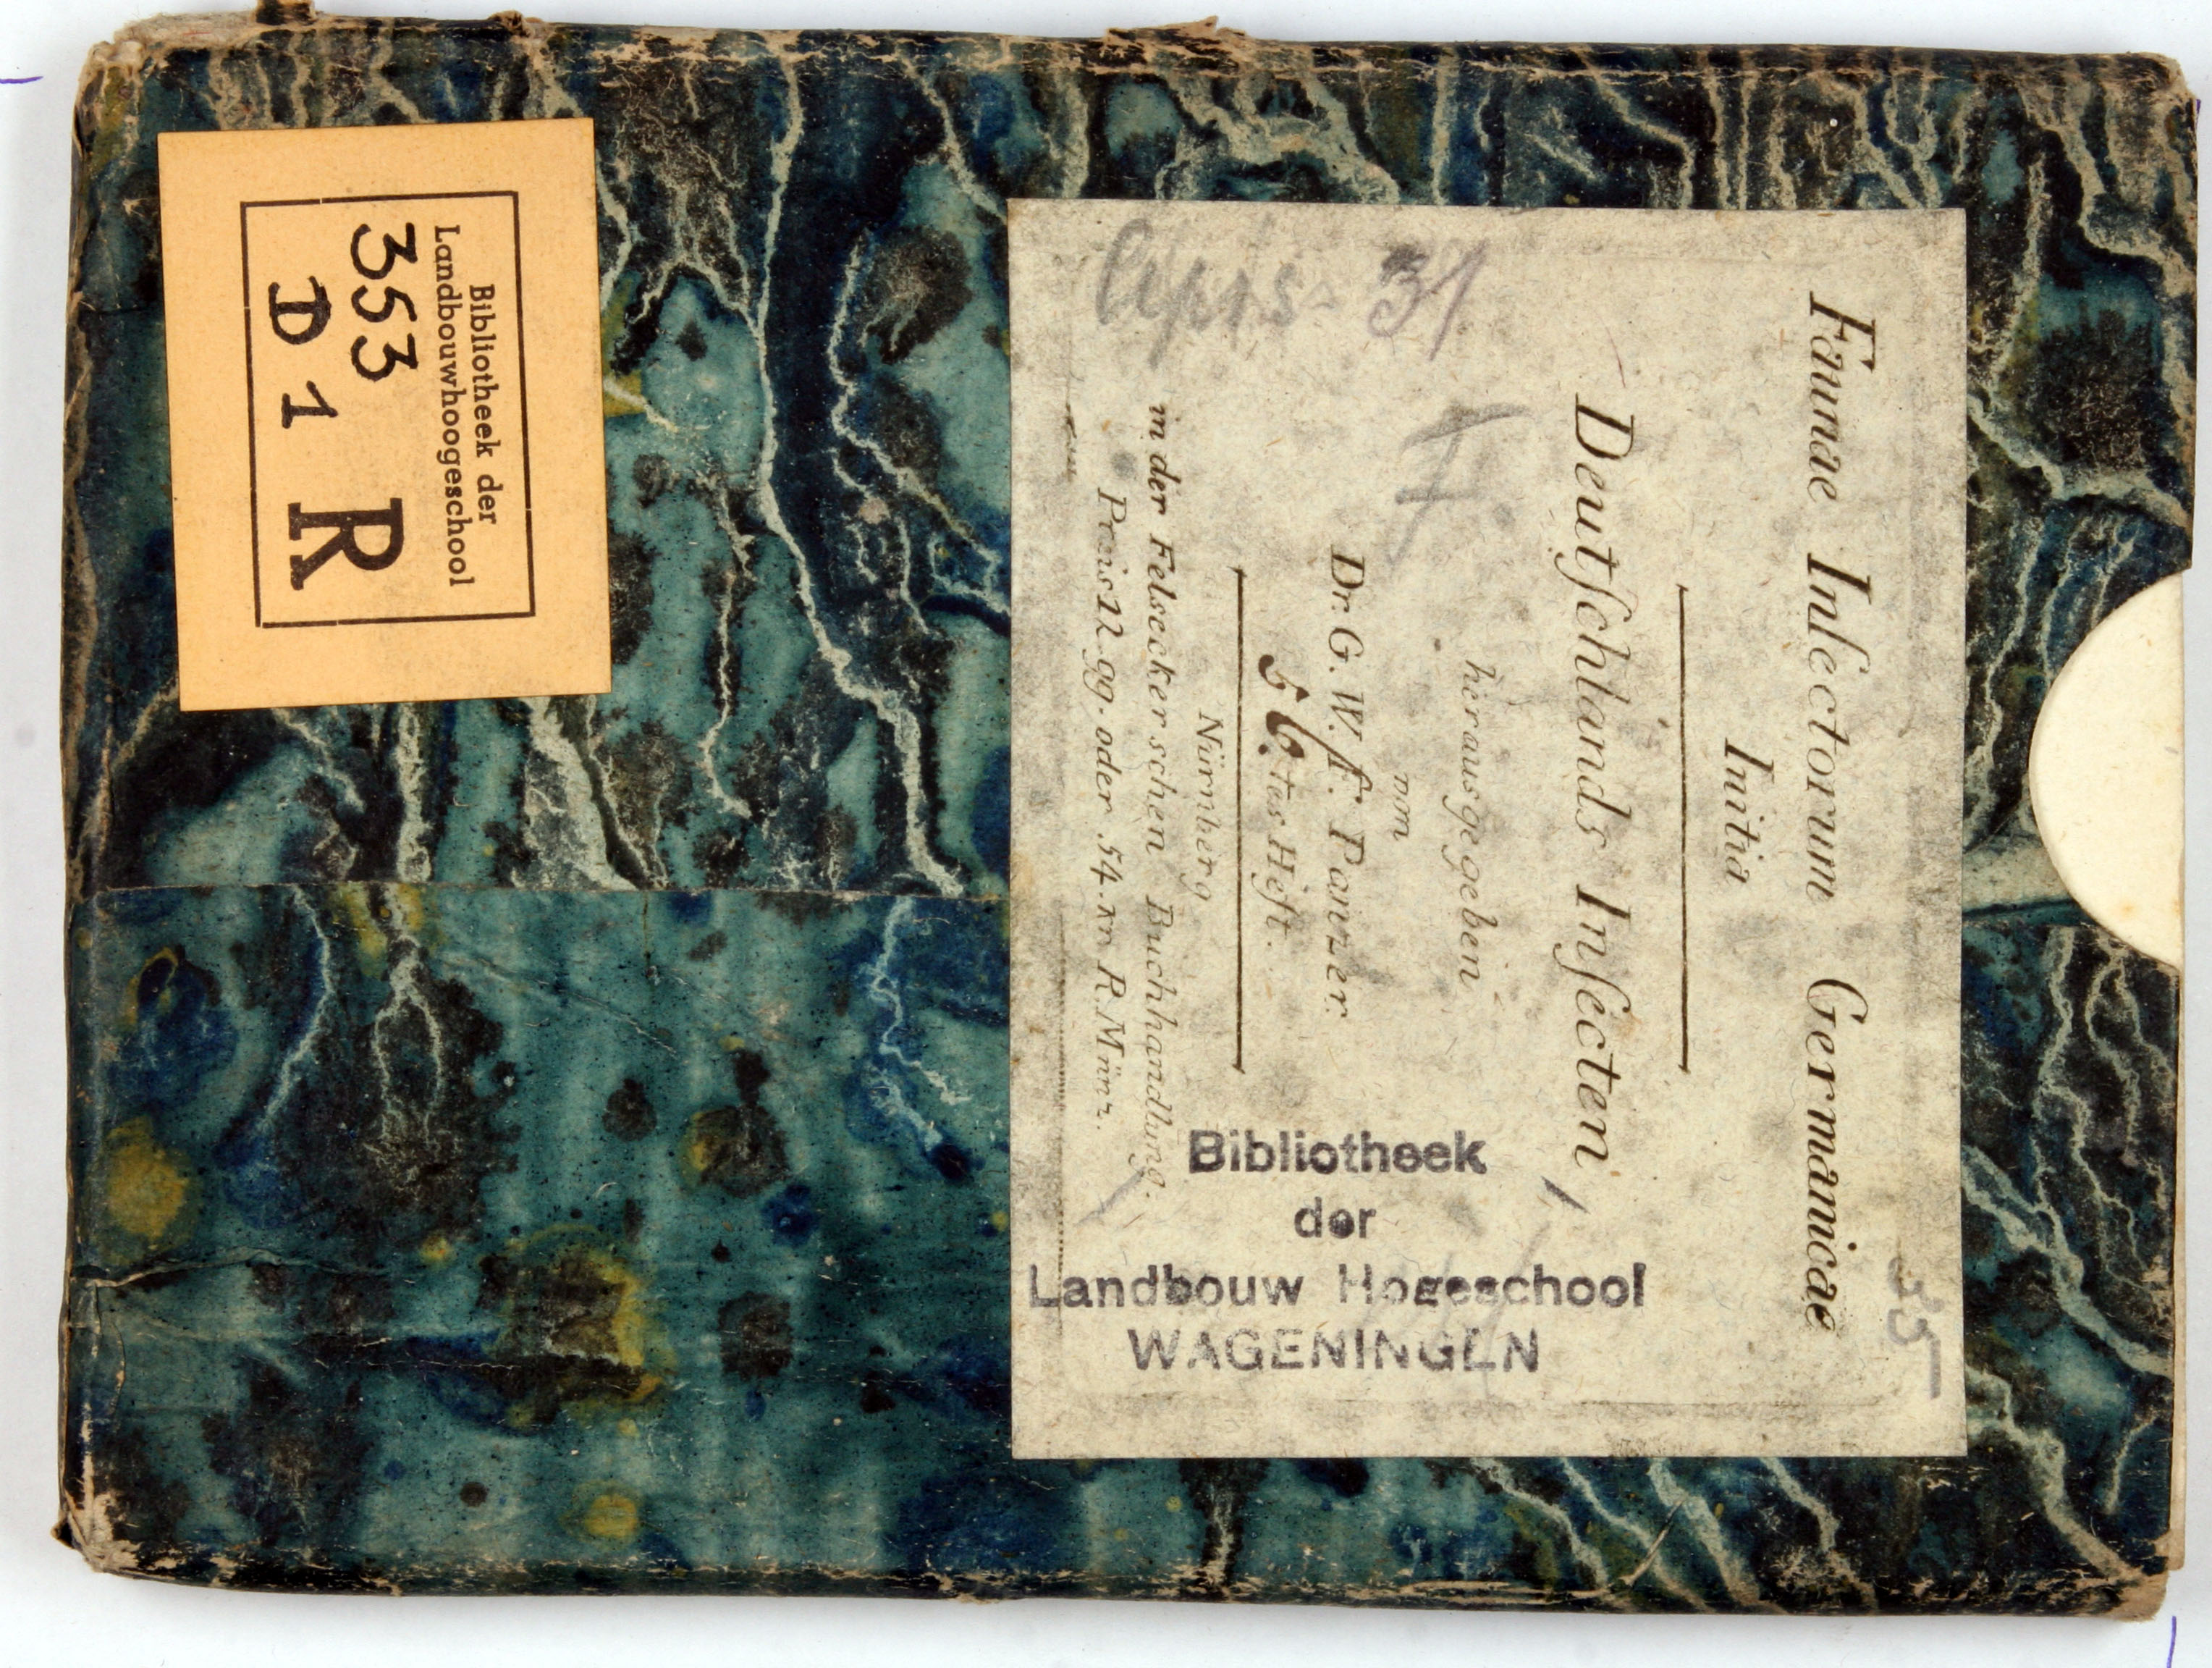 Faunae Insectorum Germanicae
Initia
Deutschlands Insecten
herausgegeben
von
Dr. G. W. f. Panzer.
56. tes Heft.
Nürnberg
in der Felseckerschen Buchhandlung.
Preis 12 gg. oder 54. xr. R. Münz.
31
F.
35
Bibliotheek
der
Landbouw Hogeschool
WAGENINGEN
Bibliotheek der
Landbouwhoogeschool
353
D 1 R